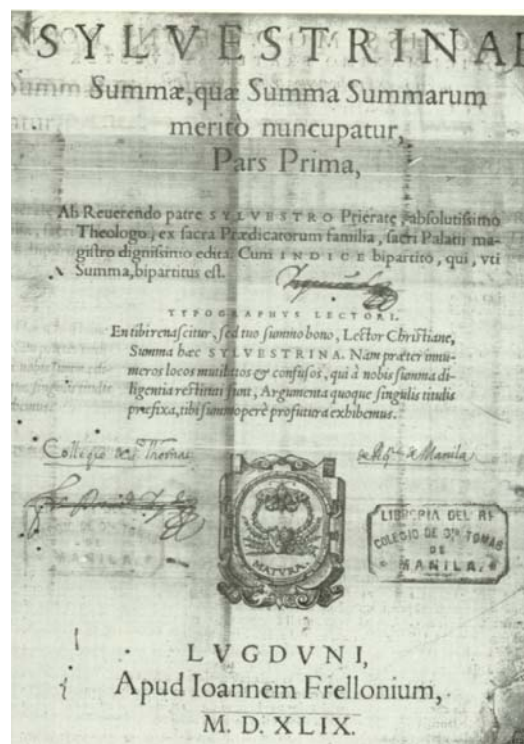 SYLVESTRINAE
Summæ, quæ Summa Summarum
meritò nuncupatur,
Pars Prima,
Ab Reuerendo patre SYLVESTRO Prierate, absolutissimo
Theologo, ex sacra Prædicatorum familia, sacri Palatii ma-
gistro dignissimo edita. Cum INDICE bipartito, qui, vti
Summa, bipartitus est.
TYPOGRAPHVS LECTORI.
En tibi renascitur, sed tuo summo bono, Lector Christiane,
Summa hæc SYLVESTRINA. Nam præter innu-
meros locos mutilatos & confusos, qui à nobis summa di-
ligentia restituti sunt, Argumenta quoque singulis titulis
præfixa, tibi summopere profutura exhibemus.
Collegio de S. Thomas de Manila
MATVRA.
LIBRERIA DEL RL
COLEGIO DE Sto TOMAS
DE
MANILA.
LVGDVNI,
Apud Ioannem Frellonium,
M. D. XLIX.